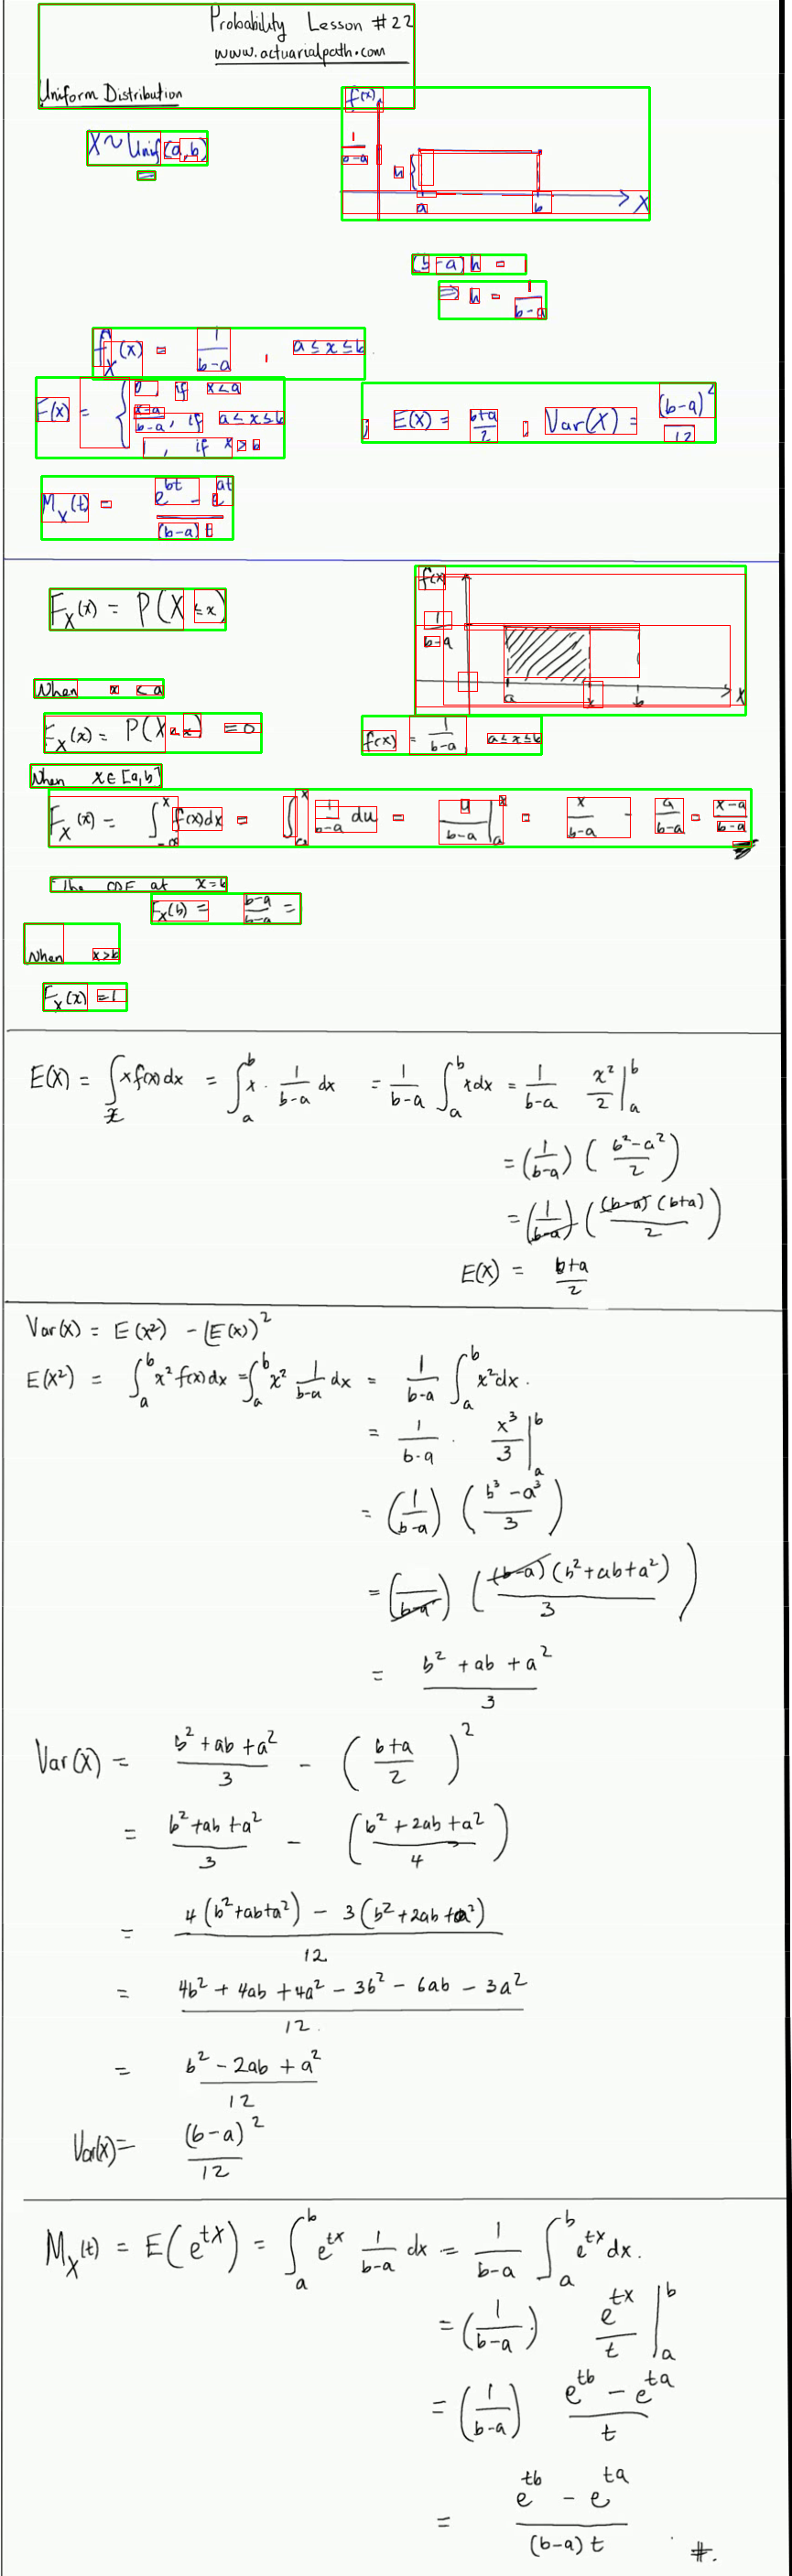 Probability Lesson #22
www.actuarialpath.com
Uniform Distribution
X ~ Unif (a,b)
f(x)
1/(b-a)
h {
a b X
(b-a) h = 1
⇒ h = 1/(b-a)
f_X(x) = 1/(b-a) , a ≤ x ≤ b
F(x) = { 0, if x < a
(x-a)/(b-a), if a ≤ x ≤ b
1, if x > b
; E(X) = (b+a)/2 , Var(X) = (b-a)^2/12
M_X(t) = (e^bt - e^at)/((b-a) t)
F_X(x) = P(X ≤ x)
f(x)
1/(b-a)
a x b X
When x < a
F_X(x) = P(X ≤ x) = 0
f(x) = 1/(b-a) a ≤ x ≤ b
When x ∈ [a,b]
F_X(x) = ∫_{-∞}^x f(x)dx = ∫_a^x 1/(b-a) du = u/(b-a) |_a^x = x/(b-a) - a/(b-a) = (x-a)/(b-a)
The CDF at x=b
F_X(b) = (b-a)/(b-a) =
When x > b
F_X(x) = 1
E(X) = ∫_x x f(x) dx = ∫_a^b x · 1/(b-a) dx = 1/(b-a) ∫_a^b x dx = 1/(b-a) x^2/2 |_a^b
= (1/(b-a)) ((b^2-a^2)/2)
= (1/(b-a)) ((b-a)(b+a)/2)
E(X) = (b+a)/2
Var(X) = E(X^2) - (E(X))^2
E(X^2) = ∫_a^b x^2 f(x) dx = ∫_a^b x^2 1/(b-a) dx = 1/(b-a) ∫_a^b x^2 dx.
= 1/(b-a) · x^3/3 |_a^b
= (1/(b-a)) ((b^3 - a^3)/3)
= (1/(b-a)) ((b-a)(b^2+ab+a^2)/3)
= (b^2 + ab + a^2)/3
Var(X) = (b^2 + ab + a^2)/3 - ((b+a)/2)^2
= (b^2 + ab + a^2)/3 - ((b^2 + 2ab + a^2)/4)
= (4(b^2+ab+a^2) - 3(b^2+2ab+a^2))/12
= (4b^2 + 4ab + 4a^2 - 3b^2 - 6ab - 3a^2)/12.
= (b^2 - 2ab + a^2)/12
Var(X) = (b-a)^2/12
M_X(t) = E(e^tX) = ∫_a^b e^tx 1/(b-a) dx = 1/(b-a) ∫_a^b e^tx dx.
= (1/(b-a)) e^tx/t |_a^b
= (1/(b-a)) (e^tb - e^ta)/t
= (e^tb - e^ta)/((b-a) t) #.